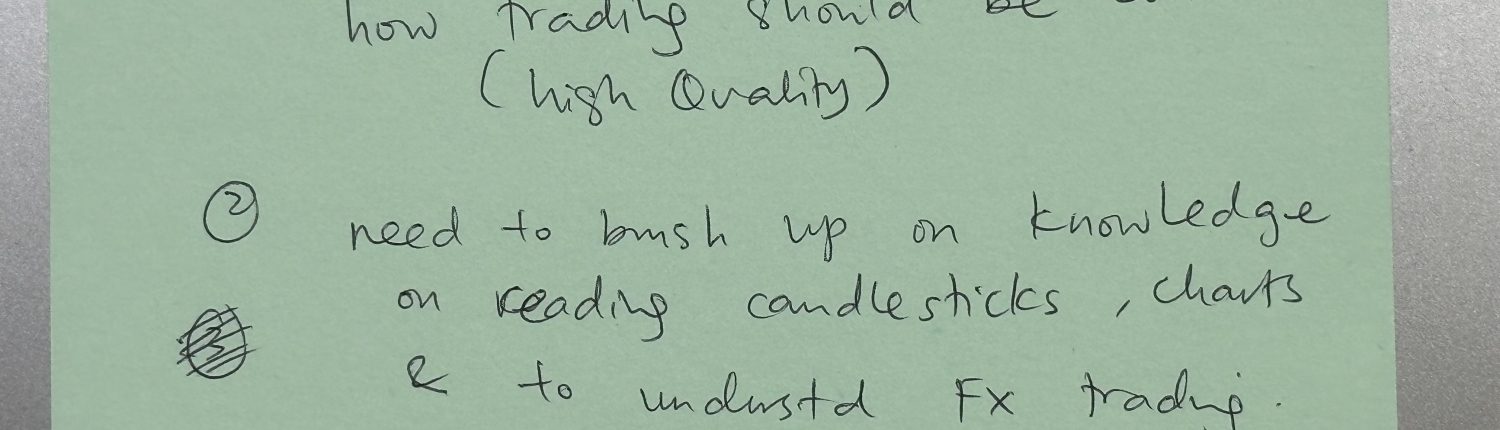 how trading should be
(high Quality)
② need to brush up on knowledge
on reading candlesticks, charts
& to understd FX trading.